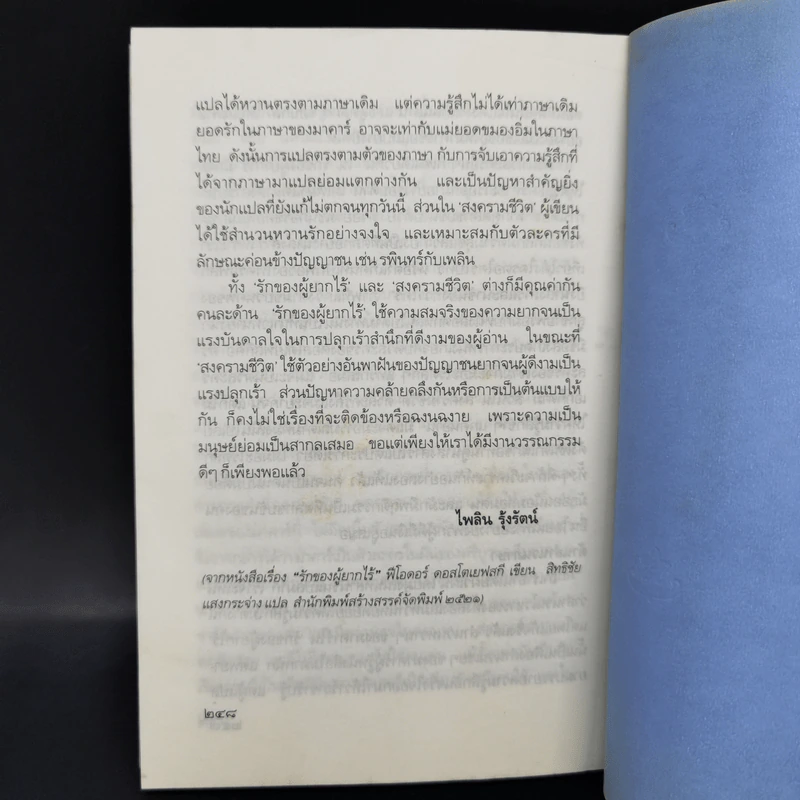 แปลได้หวานตรงตามภาษาเดิม แต่ความรู้สึกไม่ได้เท่าภาษาเดิม
ยอดรักในภาษาของมาคาร์ อาจจะเท่ากับแม่ยอดขมองอิ่มในภาษา
ไทย ดังนั้นการแปลตรงตามตัวของภาษา กับการจับเอาความรู้สึกที่
ได้จากภาษามาแปลย่อมแตกต่างกัน และเป็นปัญหาสำคัญยิ่ง
ของนักแปลที่ยังแก้ไม่ตกจนทุกวันนี้ ส่วนใน 'สงครามชีวิต' ผู้เขียน
ได้ใช้สำนวนหวานรักอย่างจงใจ และเหมาะสมกับตัวละครที่มี
ลักษณะค่อนข้างปัญญาชน เช่น รพินทร์กับเพลิน
ทั้ง 'รักของผู้ยากไร้' และ 'สงครามชีวิต' ต่างก็มีคุณค่ากัน
คนละด้าน 'รักของผู้ยากไร้' ใช้ความสมจริงของความยากจนเป็น
แรงบันดาลใจในการปลุกเร้าสำนึกที่ดีงามของผู้อ่าน ในขณะที่
'สงครามชีวิต' ใช้ตัวอย่างอันพาฝันของปัญญาชนยากจนผู้ดีงามเป็น
แรงปลุกเร้า ส่วนปัญหาความคล้ายคลึงกันหรือการเป็นต้นแบบให้
กัน ก็คงไม่ใช่เรื่องที่จะติดข้องหรือฉงนฉงาย เพราะความเป็น
มนุษย์ย่อมเป็นสากลเสมอ ขอแต่เพียงให้เราได้มีงานวรรณกรรม
ดีๆ ก็เพียงพอแล้ว
ไพลิน รุ้งรัตน์
(จากหนังสือเรื่อง "รักของผู้ยากไร้" ฟีโอดอร์ ดอสโตเยฟสกี เขียน สิทธิชัย
แสงกระจ่าง แปล สำนักพิมพ์สร้างสรรค์จัดพิมพ์ ๒๕๒๑)
๒๔๘